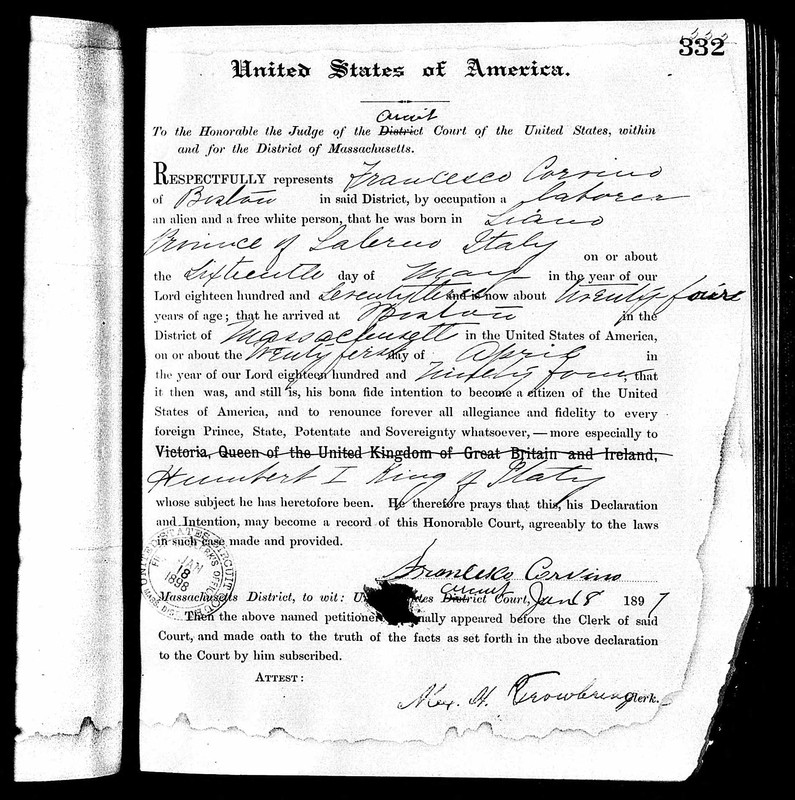 332
United States of America.
Circuit
To the Honorable the Judge of the District Court of the United States, within
and for the District of Massachusetts.
RESPECTFULLY represents Francesco Corvino
of Boston in said District, by occupation a laborer
an alien and a free white person, that he was born in Liano
Province of Salerno Italy
on or about
the Sixteenth day of May in the year of our
Lord eighteen hundred and Seventy three and is now about twenty four
years of age; that he arrived at Boston in the
District of Massachusetts in the United States of America,
on or about the Twenty first day of April in
the year of our Lord eighteen hundred and Ninety four, that
it then was, and still is, his bona fide intention to become a citizen of the United
States of America, and to renounce forever all allegiance and fidelity to every
foreign Prince, State, Potentate and Sovereignty whatsoever,—more especially to
Victoria, Queen of the United Kingdom of Great Britain and Ireland,
Humbert I King of Italy
whose subject he has heretofore been. He therefore prays that this, his Declaration
and Intention, may become a record of this Honorable Court, agreeably to the laws
in such case made and provided.
UNITED STATES CIRCUIT COURT
CLERK'S OFFICE
JAN
8
1898
MASS. DIST.
Francesco Corvino
Circuit
Massachusetts District, to wit: District Court, Jan 8 1897
Then the above named petitioner appeared before the Clerk of said
Court, and made oath to the truth of the facts as set forth in the above declaration
to the Court by him subscribed.
ATTEST:
Alex. H. Trowbridge Clerk.